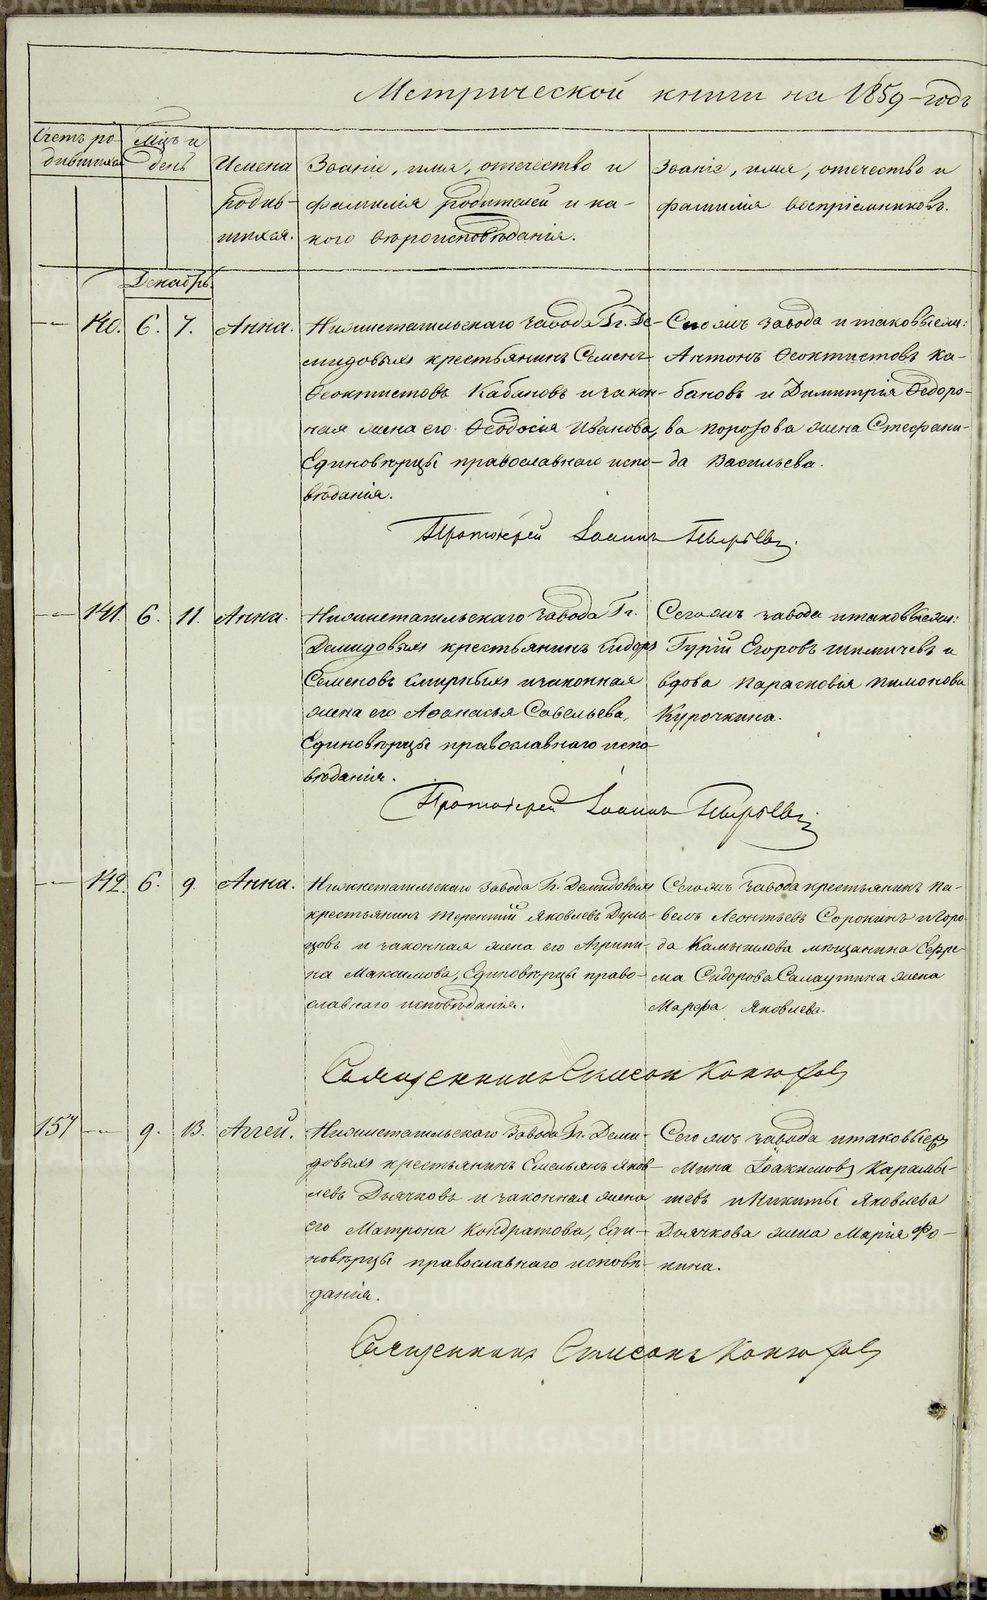 Метрической книги на 1859-годъ
Счетъ ро-
дившихся
Мцъ и
день
Имена
родив-
шихся.
Званіе, имя, отечество и
фамилія родителей и ка-
кого вѣроисповѣданія.
Званіе, имя, отечество и
фамилія воспріемниковъ.
Декабрь.
140. 6. 7. Анна.
Нижнетагильскаго завода Гг. Де-
мидовыхъ крестьянинъ Семенъ
Ѳеоктистовъ Кабановъ и закон-
ная жена его Ѳеодосія Иванова,
Единовѣрцы православнаго испо-
вѣданія.
завода и таковые же:
Антонъ Ѳеоктистовъ Ка-
бановъ и Димитрія Ѳедоро-
ва Порозова жена Стефани-
да Васильева.
Протоіерей Іоаннъ
141. 6. 11. Анна.
Нижнетагильскаго завода Гг.
Демидовыхъ крестьянинъ Сидоръ
Семеновъ Смирныхъ и законная
жена его Аѳанасья Савельева,
Единовѣрцы православнаго испо-
вѣданія.
Сегожъ завода и таковые же:
Гурій Егоровъ и
вдова Парасковія Пимонова
Курочкина.
Протоіерей Іоаннъ
142. 6. 9. Анна.
Нижнетагильскаго завода Гг. Демидовыхъ
крестьянинъ Терентій Яковлевъ
и законная жена его Агрипи-
на Максимова, Единовѣрцы право-
славнаго исповѣданія.
Сегожъ завода крестьянинъ Па-
велъ Леонтьевъ Сорокинъ и горо-
да Камышлова мѣщанина
Сидорова Салаутина жена
Марфа Яковлева.
Священникъ Симеон Конюхов
157 9. 13. Аггей.
Нижнетагильскаго завода Гг. Деми-
довыхъ крестьянинъ Емельянъ Яков-
левъ Дьячковъ и законная жена
его Матрона Кондратова, Еди-
новѣрцы православнаго исповѣ-
данія.
Сегожъ завода и таковые
Мина Іоакимовъ Карамы-
шевъ и Никиты Яковлева
Дьячкова жена Марія Фо-
кина.
Священникъ Симеонъ Конюхов
METRIKI.GASO-URAL.RU